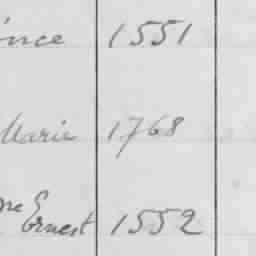 ince 1551
Marie 1768
me Ernest 1552